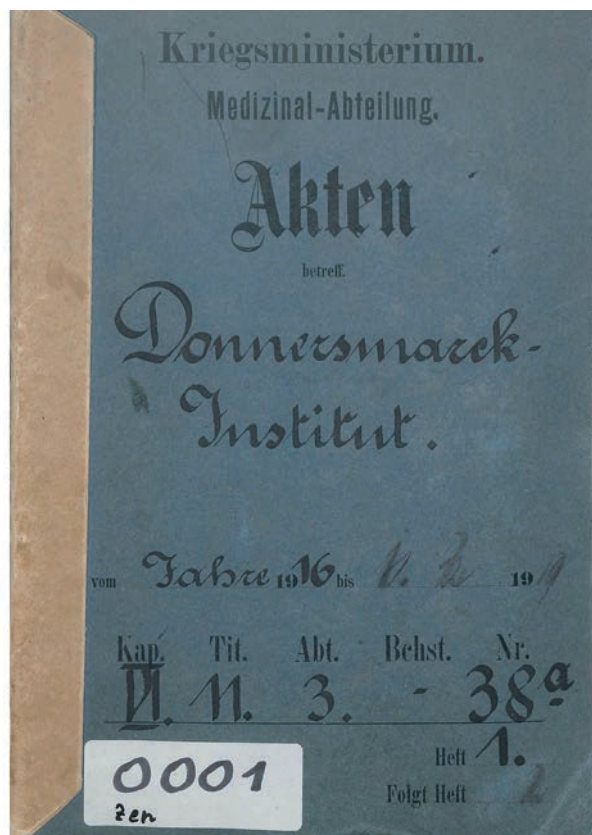 Kriegsministerium.
Medizinal-Abteilung.
Akten
betreff.
Donnersmarck-
Institut.
vom Jahre 1916 bis 1919
Kap. Tit. Abt. Bchst. Nr.
VI. 11. 3. - 38a
Heft 1.
Folgt Heft 2
0001
zen